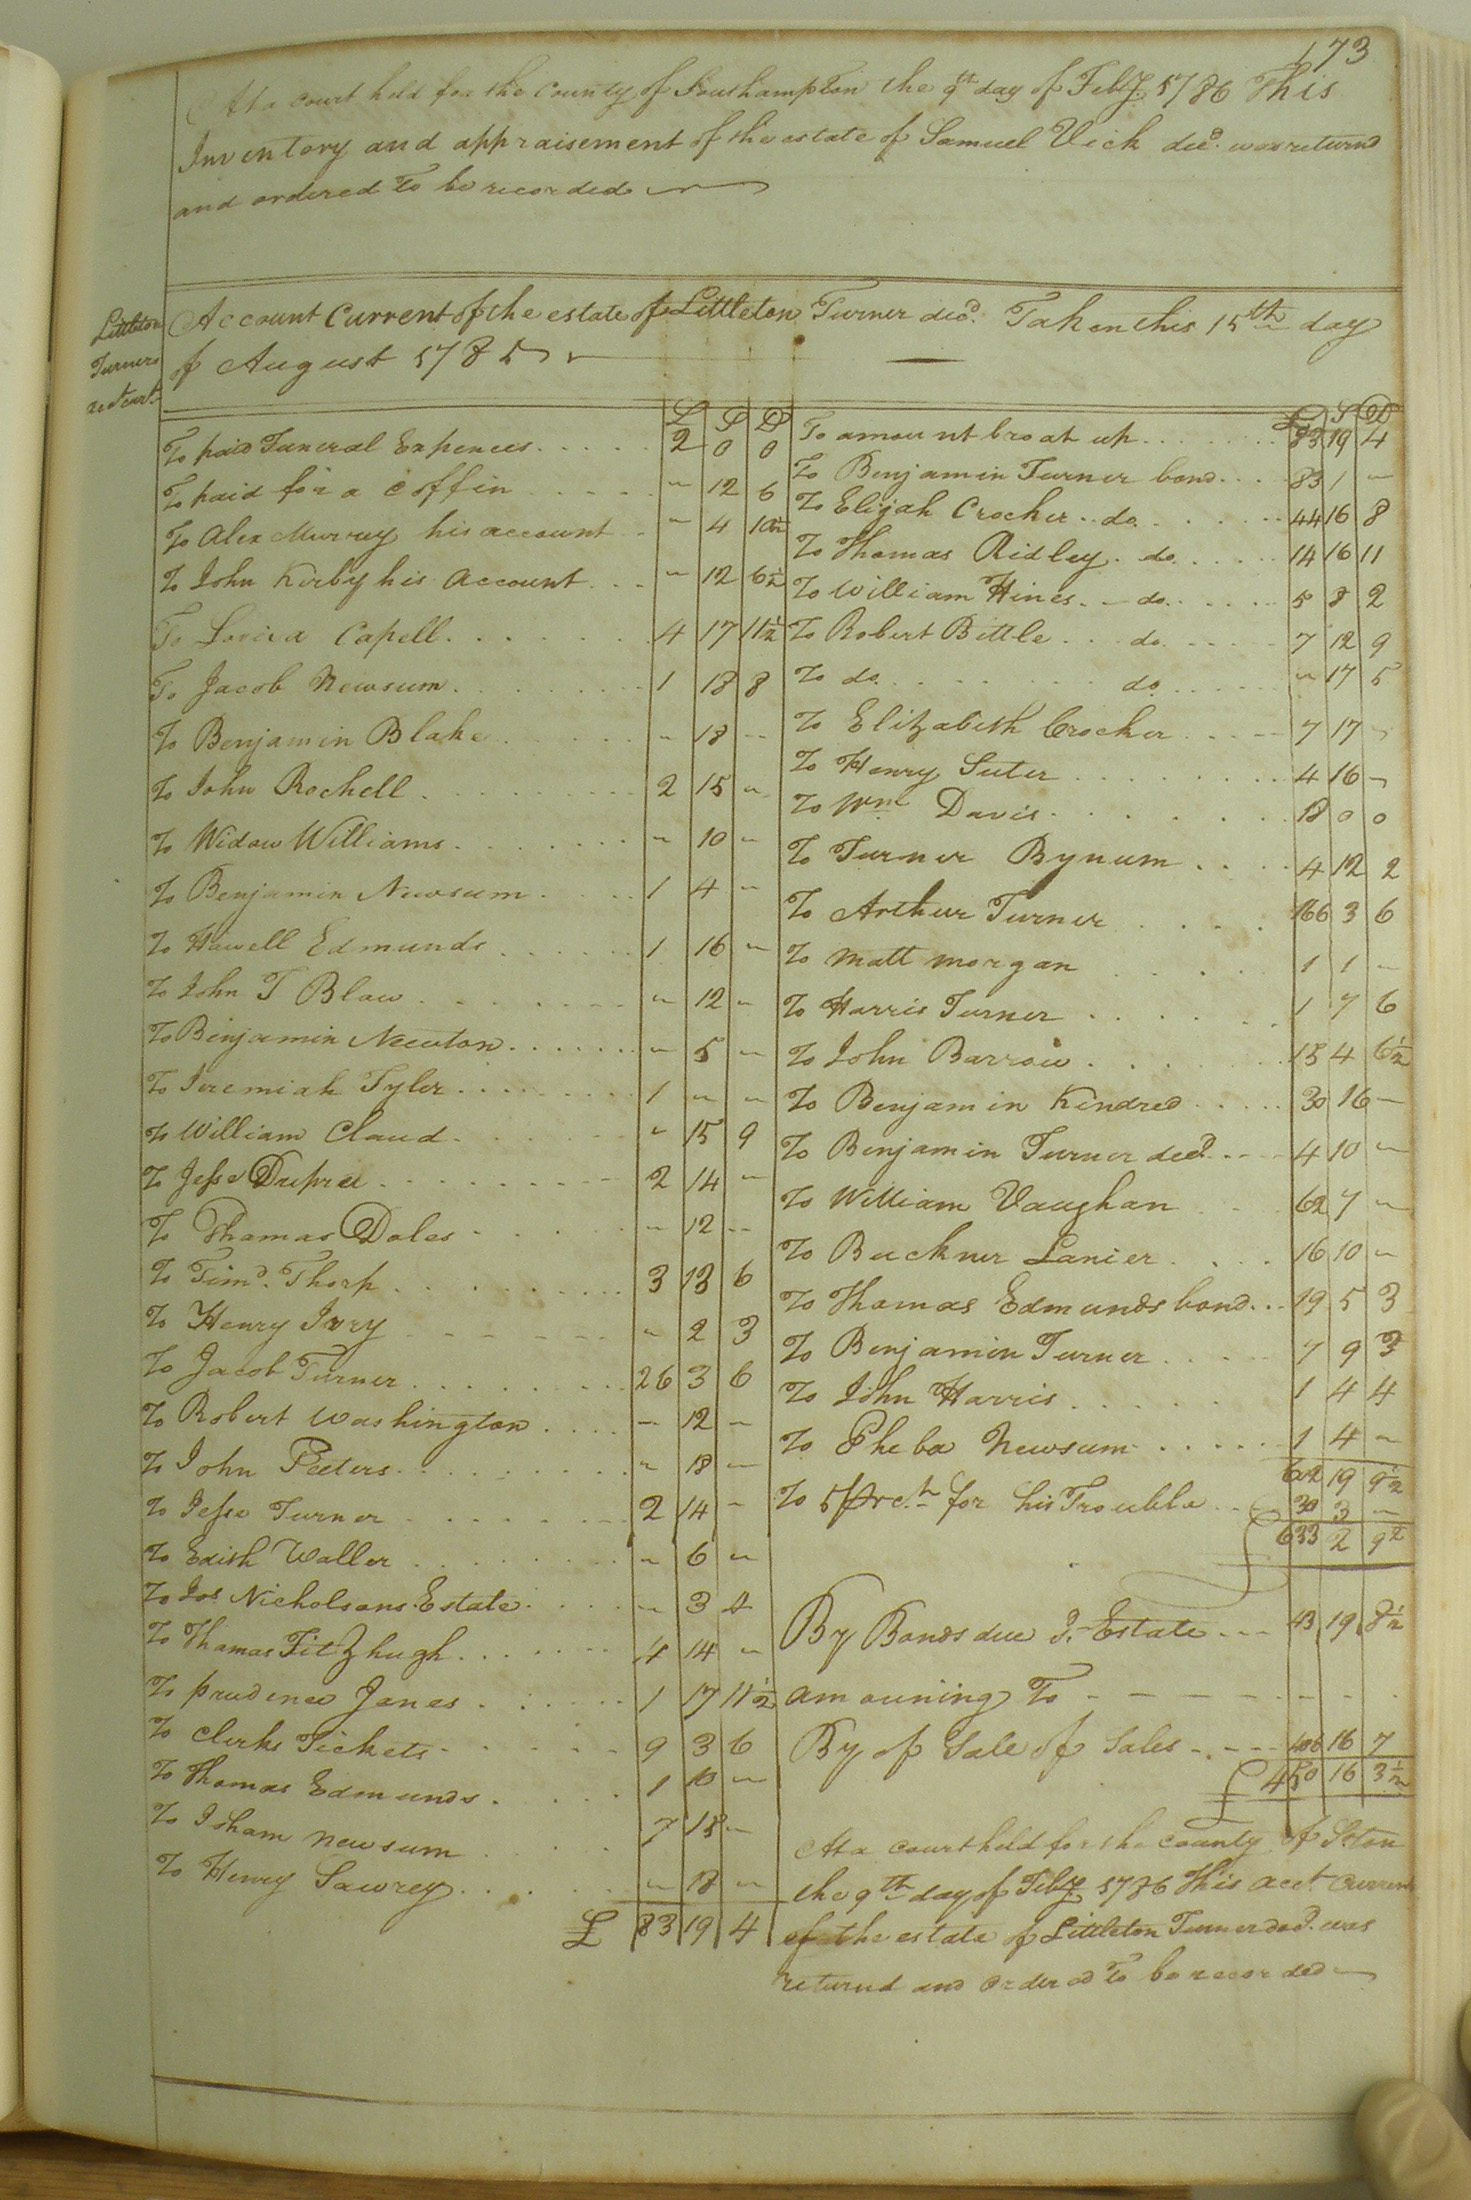 173
At a court held for the County of Southampton the 9th day of Feby. 1786 This
Inventory and appraisement of the estate of Samuel Vick decd. was returnd
and ordered To be recorded
Littleton
Turners
Account Current of the estate of Littleton Turner decd. Taken this 15th day
of August 1785
L S D
To paid Funeral Expences 2 0 0
To paid for a Coffin " 12 6
To Alex Murray his account " 4 10½
To John Kirby his account " 12 6½
To Lovisa Capell 4 17 11½
To Jacob Newsum 1 18 8
To Benjamin Blake " 18 "
To John Rochell 2 15 "
To Widow Williams " 10 "
To Benjamin Newsum 1 4 "
To Howell Edmunds 1 16 "
To John T Blow " 12 "
To Benjamin Newton " 5 "
To Jeremiah Tyler 1 " "
To William Claud " 15 9
To Jesse Dupree 2 14 "
To Thomas Doles " 12 "
To Timo. Thorp 3 13 6
To Henry Ivry " 2 3
To Jacob Turner 26 3 6
To Robert Washington " 12 "
To John Peeters " 18 "
To Jesse Turner 2 14 "
To Edith Waller " 6 "
To Jos Nicholsons Estate " 3 4
To Thomas FitZhugh 4 14 "
To prudence Jones 1 17 11½
To Clerks Tickets 9 3 6
To Thomas Edmunds 1 10 "
To Isham Newsum 7 18 "
To Henry Sawrey " 18 "
£ 83 19 4
£ S D
To amount broat up 83 19 4
To Benjamin Turner bond 83 1 "
To Elijah Crocker do 44 16 8
To Thomas Ridley do 14 16 11
To William Hines do 5 8 2
To Robert Bittle do 7 12 9
To do do " 17 5
To Elizabeth Crocker 7 17 "
To Henry Suter 4 16 "
To Wm. Davis 18 0 0
To Turner Bynum 4 12 2
To Arthur Turner 166 3 6
To Matt Morgan 1 1 "
To Harris Turner 1 7 6
To John Barrow 15 4 6½
To Benjamin Kindred 30 16 "
To Benjamin Turner decd. 4 10 "
To William Vaughan 62 7 "
To Buckner Lanier 16 10 "
To Thomas Edmunds bond 19 5 3
To Benjamin Turner 7 9 3
To John Harris 1 4 4
To Pheba Newsum 1 4 "
602 19 9½
To 5 prct. for his Trouble 30 3 "
633 2 9½
By Bonds due D. Estate 43 19 8½
amouning To
By of Sale of Sales 406 16 7
£ 450 16 3½
At a court held for the county of Soton
the 9th day of Feby 1786 This acct. Current
of the estate of Littleton Turner decd. was
returnd and ordered To be recorded